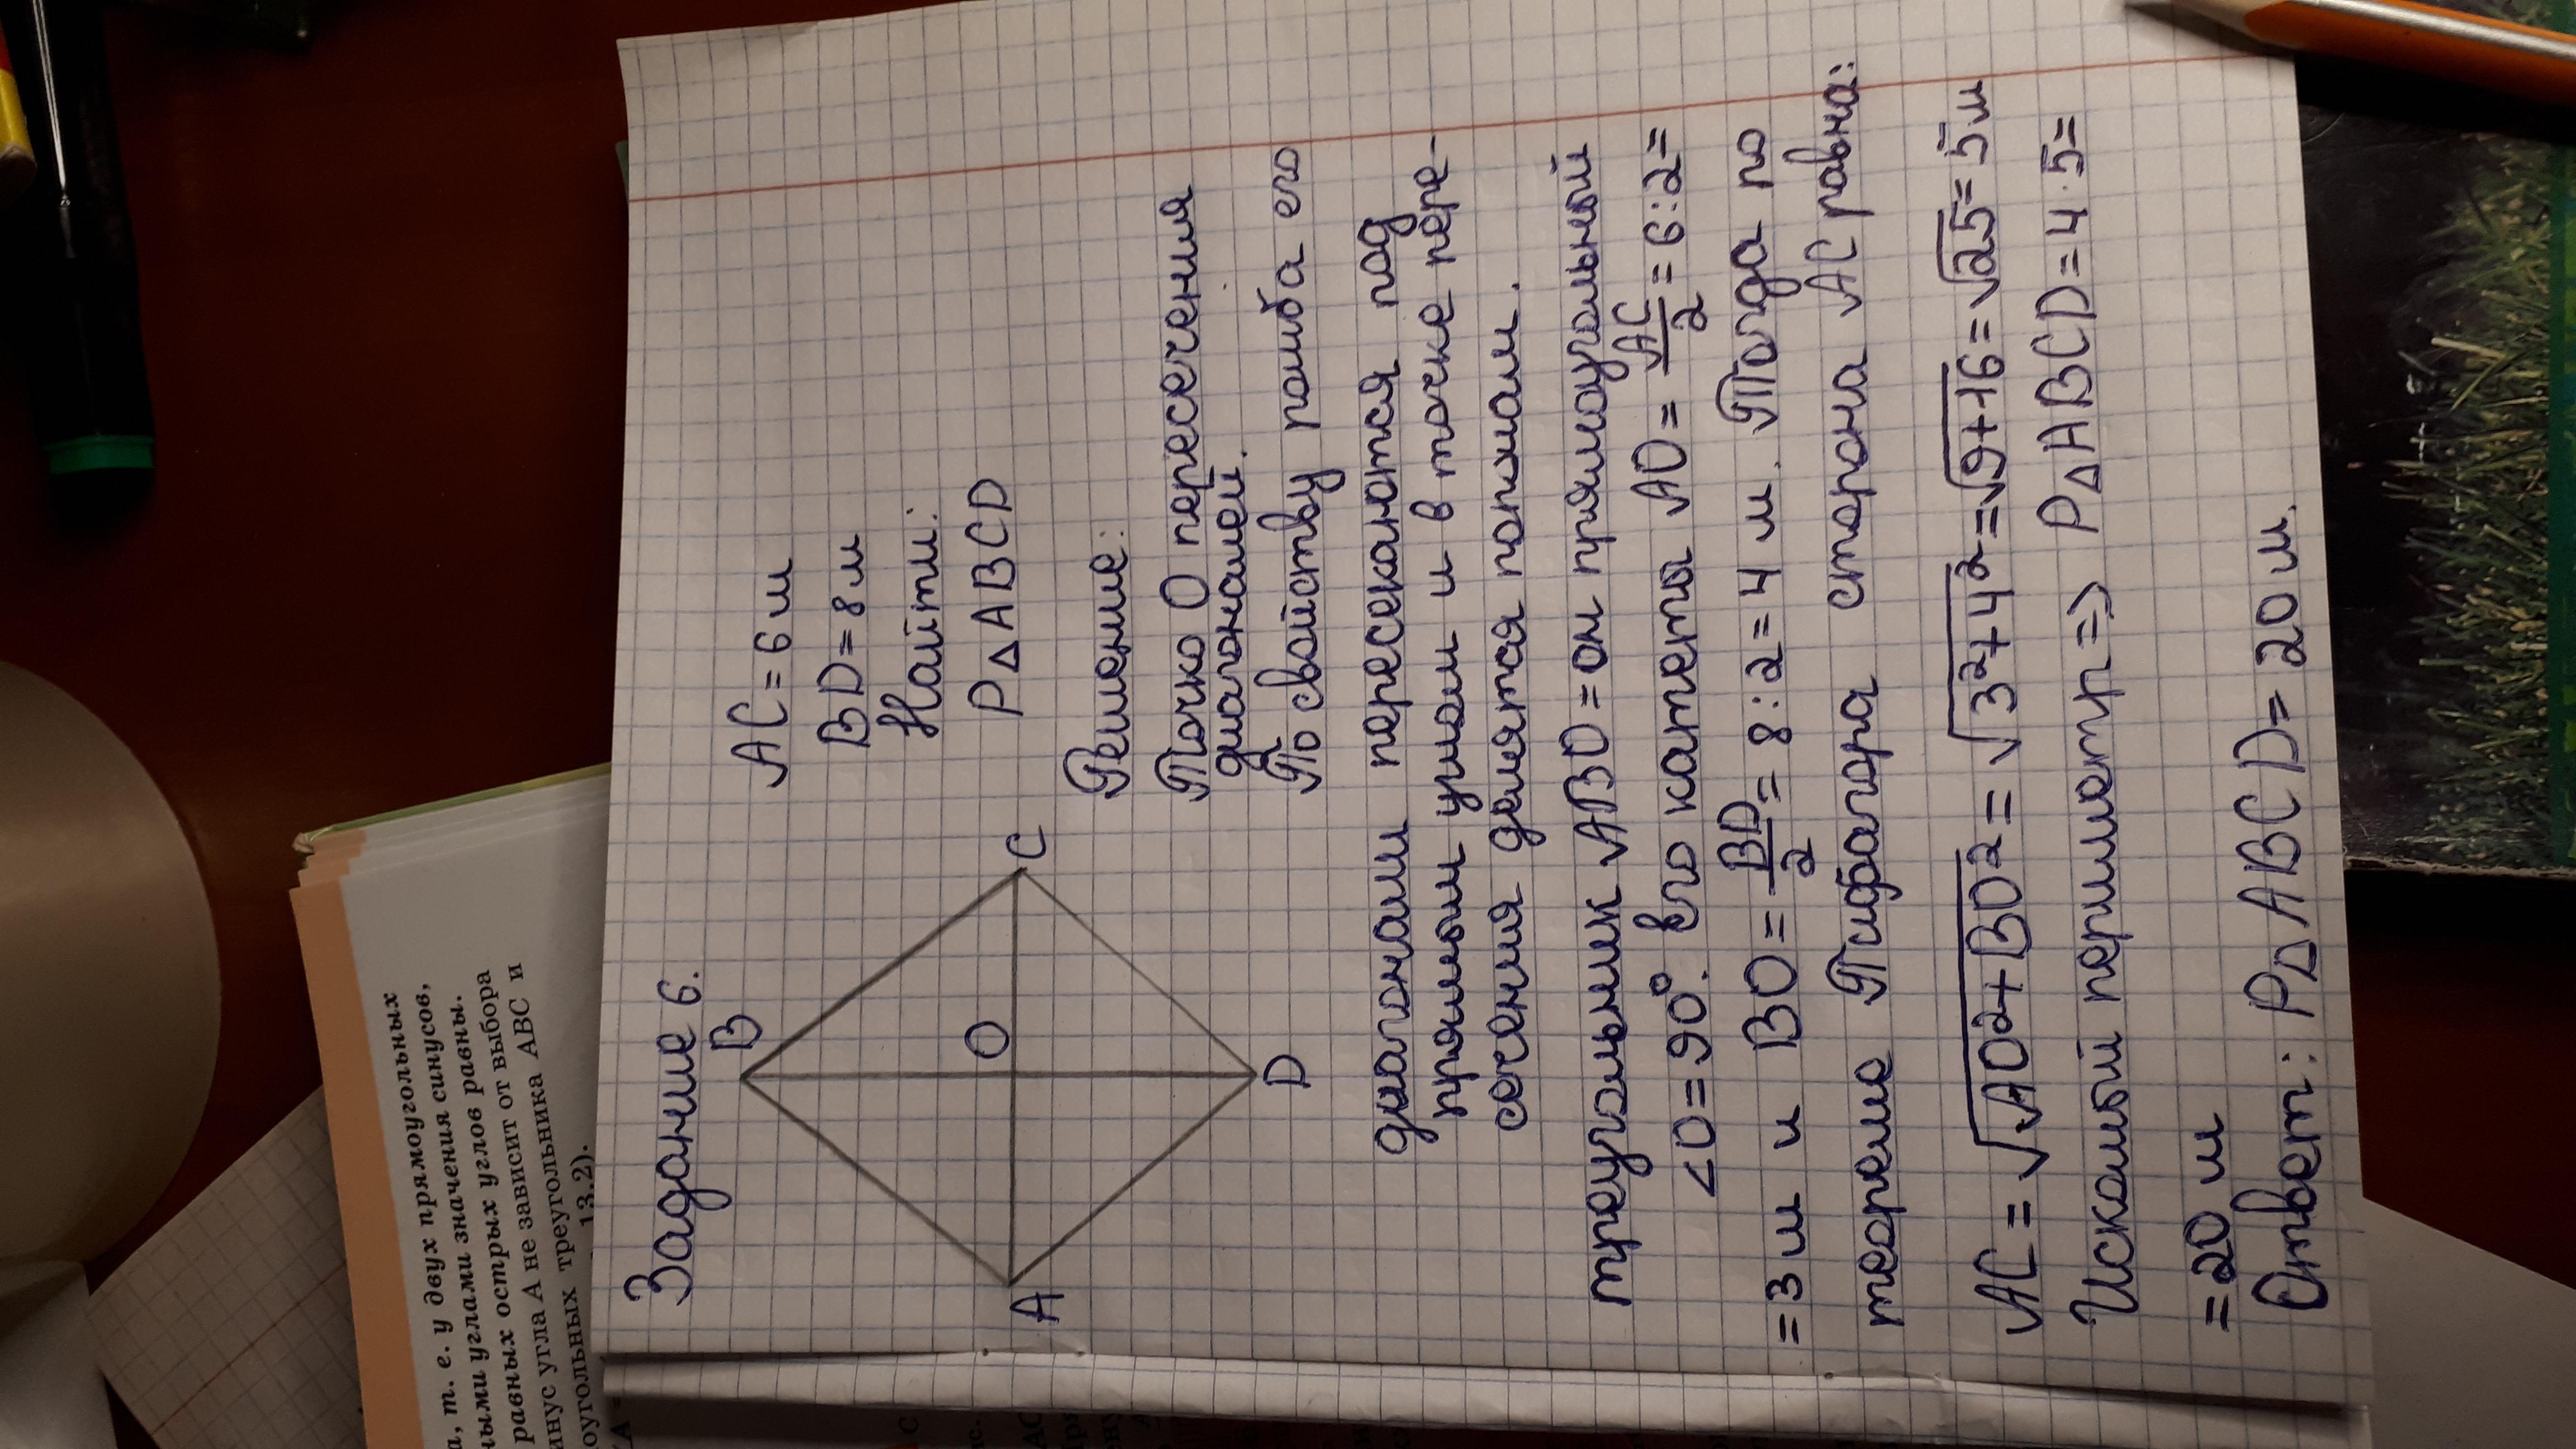 Задание 6.
B
O
A
C
D
AC = 6 м
BD = 8 м
Найти:
P△ABCD
Решение:
Точка O пересечения
диагоналей.
По свойству ромба его
диагонали пересекаются под
прямым углом и в точке пере-
сечения делятся пополам.
треугольник ABO = он прямоугольный
<O = 90°. Его катеты AO = AC/2 = 6 : 2 =
= 3 м и BO = BD/2 = 8 : 2 = 4 м. Тогда по
теореме Пифагора сторона AC равна:
AC = √AO² + BO² = √3² + 4² = √9 + 16 = √25 = 5 м
Искомый периметр => P△ABCD = 4 · 5 =
= 20 м
Ответ: P△ABCD = 20 м.
а, т. е. у двух прямоугольных
ными углами значения синусов,
равных острых углов равны.
инус угла A не зависит от выбора
оугольных треугольника ABC и
13.2).